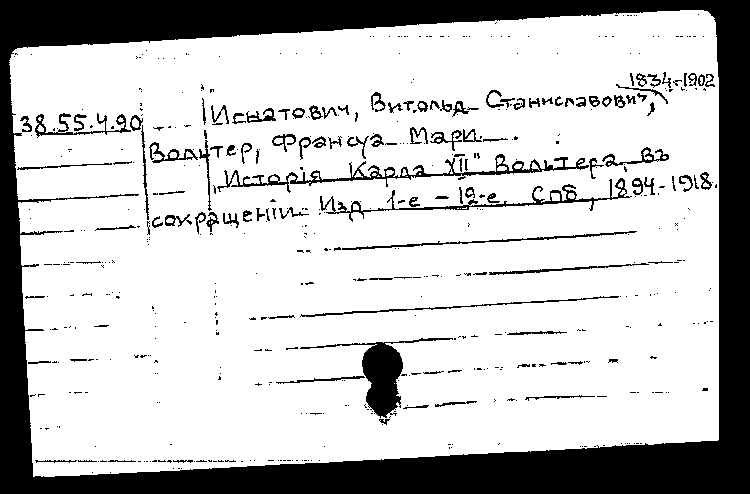 1834-1902
38.55.4.90 Игнатович, Витольд Станиславович,
Вольтер, Франсуа Мари.
"Исторія Карла XII" Вольтера, въ
сокращеніи. Изд 1-е - 12-е. Спб, 1894-1918.